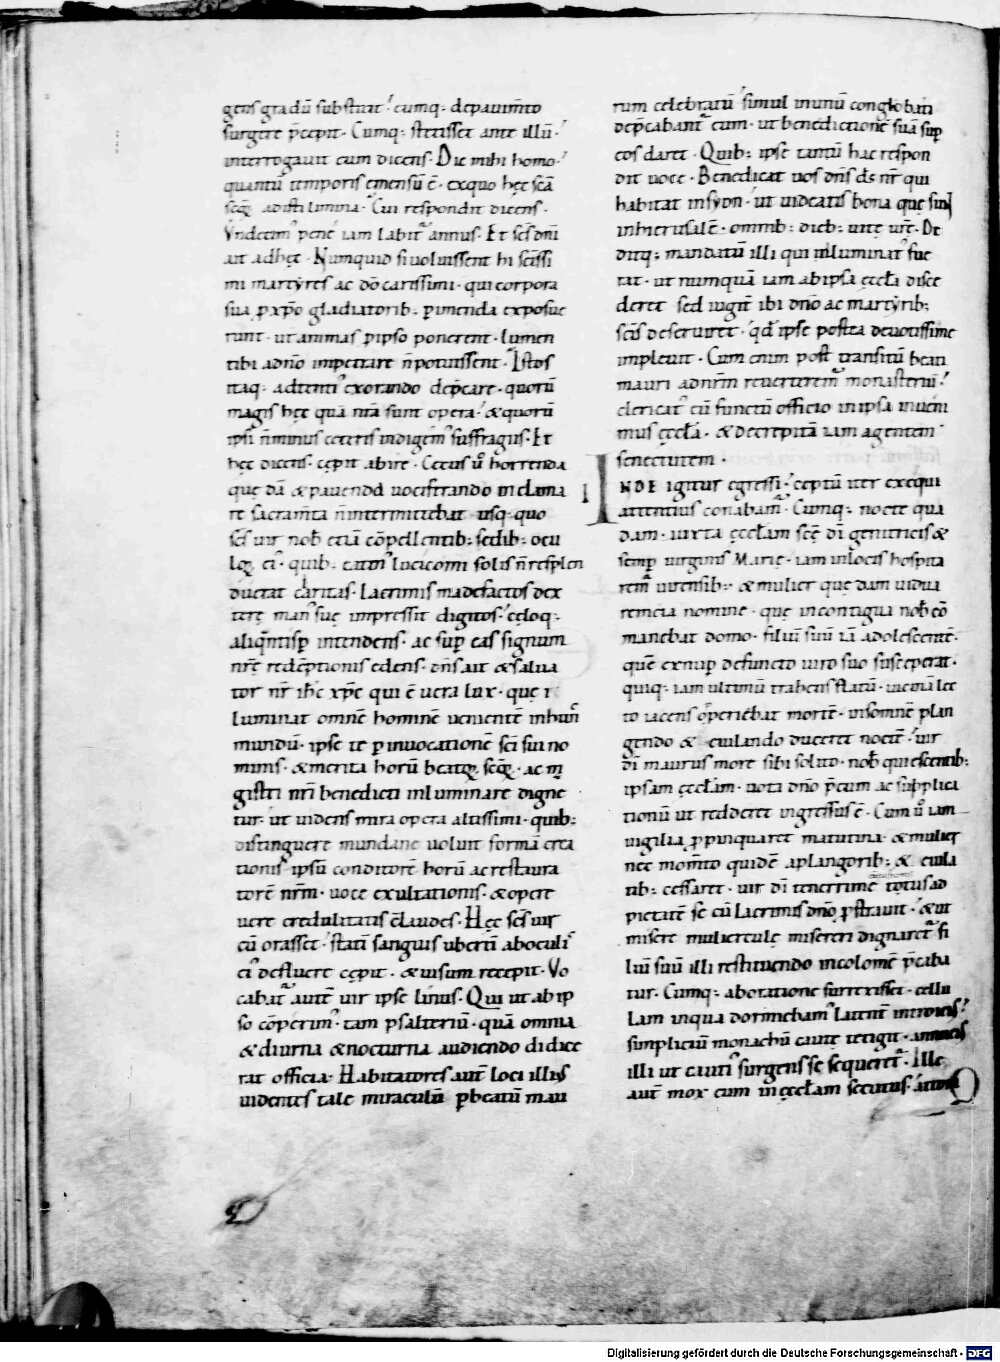 gens gradū substitit. cumq; depavimto
surgere p̄cepit. Cumq; stetisset ante illū.
interrogavit eum dicens. Dic mihi homo.
quantū temporis em̄ensū ē. exquo hęc scā
adisti limina. Cui respondit dicens.
Vndecim' pene iam labit' annus. Et scs dni
ait adhęc. Numquid si voluissent hi scissi
mi martyres ac dō carissimi. qui corpora
sua p xpo gladiatorib; pimenda exposue
runt. ut animas p ipso ponerent. lumen
tibi adno impetrare n̄ potuissent. Istos
itaq; adtenti' exorando dep̄care. quorū
magis hęc quā nr̄a sunt opera. & quorū
ipsi n̄ minus ceteris indigem' suffragiis. Et
hęc dicens. cępit abire. Cecus ū horrenda
que dā & pavenda vociferando inclama
re sacram̄ta n̄ intermittebat. usq; quo
scs vir nob̄ etiā cōpellentib; sedib; ocu
lo ei. quib; tatim' lucicomi solis n̄ resplen
duerat claritas. lacrimis madefactos dex
terę man' suę impressit digitos. cęloq;
aliqn̄tisp intendens. ac sup eas signum
nr̄ę redēptionis edens. dn̄s ait & salva
tor nr̄ ihc xpc qui ē vera lux. que i
luminat omnē hominē venientē in hun̄
mundū. ipse te p invocationē sc̄i sui no
minis. & merita horū beator scor. ac m̄
gistri nr̄i benedicti inluminare digne
tur. ut videns mira opera altissimi. quib;
distinguere mundanę voluit formā crea
tionis ipsū conditorē horū ac restaura
torē nrm̄. voce exultationis. & opere
verę credulitatis c̄laudes. Hęc scs vir
cū orasset. statī sanguis ubertī ab oculi'
ei' defluere cępit. & visum recepit. Vo
cabat' autē vir ipse linus. Qui ut ab ip
so cōperim'. tam psalteriū. quā omnia
& diurna & nocturna audiendo didice
rat officia. Habitatores aut̄ loci illius
videntes tale miraculū p beatū mau
rum celebratū. simul in unū conglobati
dep̄cabant' eum. ut benedictionē suā sup
eos daret. Quib; ipse tantū hac respon
dit voce. Benedicat vos dn̄s ds nr̄ qui
habitat in syon. ut videatis bona que sunt
in hierusalē. omnib; dieb; vitę vr̄ę. De
ditq; mandatū illi qui inluminat' fue
rat. ut numquā iam ab ipsa ęccl̄a disce
deret sed iugit' ibi dn̄o ac martyrib;
scīs deserviret. qd̄ ipse postea devotissime
implevit. Cum enim post transitū beati
mauri ad nrm̄ reverterem' monasteriū.
clericat' cū functū officio in ipsa inveni
mus ęccl̄a. & decrepitā iam agentem
senectutem.
INDE igitur egressi. ceptū iter exequi
attentius conabam'. Cumq; nocte qua
dam. iuxta ęccl̄am scę di genitricis &
semp virginis Marię. iam in locis hospita
rem' utensib; & mulier que dam vidua
remeia nomine. que in contigua nob̄ cō
manebat domo. filiū suū iā adolescentē.
quē exnup defuncto viro suo susceperat.
quiq; iam ultimū trahens flatū. vicinā lec
to iacens opperiebat mortē. insomnē plan
gendo & eiulando duceret noctē. vir
di maurus more sibi solito. nob̄ quiescentib;
ipsam ęccl̄am. vota dn̄o p̄cum ac supplica
tionū ut redderet ingressus ē. Cum ū iam
vigilia ppinquaret matutina. & mulier
nec mom̄to quidē a plangorib; & eiula
tib; cessaret. vir di tenerrime totus ad
pietatē se cū lacrimis dn̄o pstravit. & ut
miserę mulierculę misereri dignaret' fi
liū suū illi restituendo incolomē p̄caba
tur. Cumq; ab oratione surrexisset. cellu
lam in qua dormiebam' latent' introiens.
simpliciū monachū caute tetigit. annuens
illi ut caute' surgens se sequeret'. Ille
aut̄ mox eum in ęccl̄am secutus.
Digitalisierung gefördert durch die Deutsche Forschungsgemeinschaft - DFG